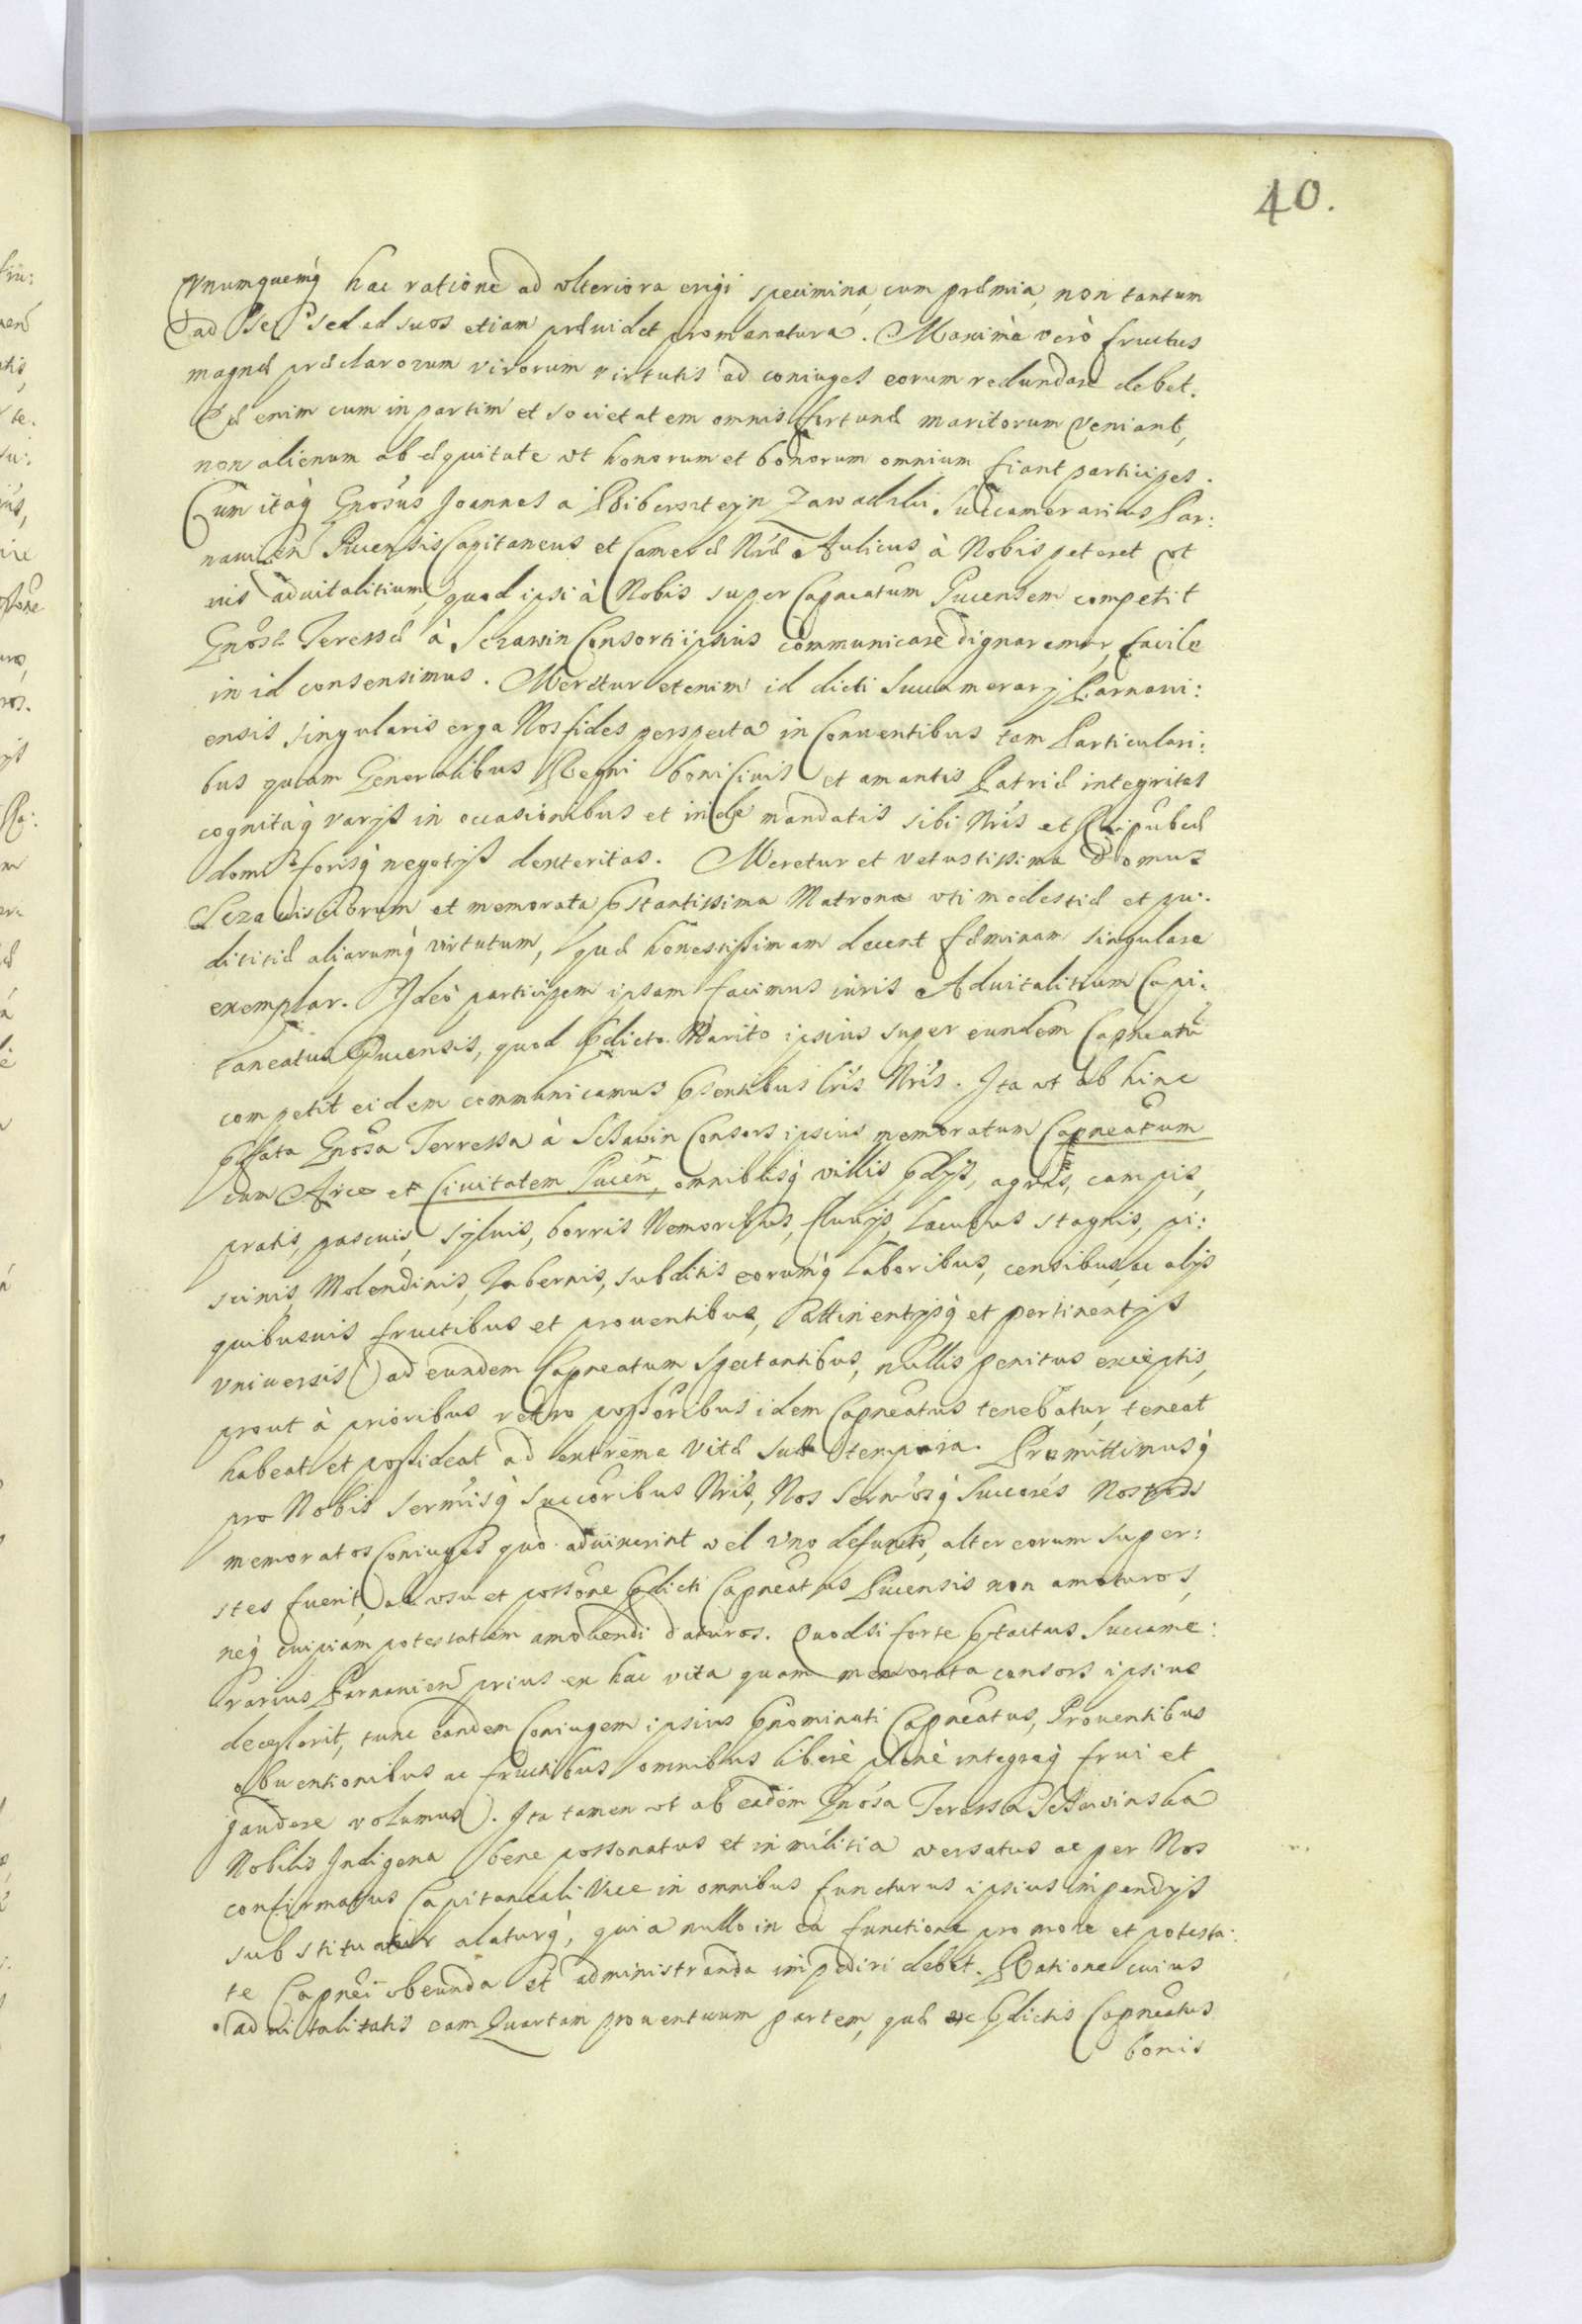 40.
Vnumquemq̀ hac ratione ad vlteriora erigi specimina, cum præmia, non tantum
ad se sed ad suos etiam præuidet promanatura. Maximè verò fructus
magnæ præclarorum virorum virtutis ad coniuges eorum redundare debet.
Eæ enim cum in partim et societatem omnis fortunæ maritorum veniant,
non alienum ab æquitate vt honorum et bonorum omnium fiant participes.
Cum itaq̀ Gnosus Joannes a Biberszteyn Zawadzki Succamerarius Par:
nauien Pucensis Capitaneus et Cameræ Nræ Aulicus à Nobis peteret vt
ius aduitalitium, quod ipsi à Nobis super Capneatum Pucensem competit
Gnosæ Teressæ à Sczawin Consorti ipsius communicare dignaremur, facile
in id consensimus. Meretur etenim id dicti Succamerarij Parnawi:
ensis singularis erga Nos fides perspecta in Conuentibus tam Particulari:
bus quam Generalibus Regni boni Ciuis et amantis Patriæ integritas
cognitaq̀ varijs in occasionibus et in de mandatis sibi Nris et Reipubcæ
domi forisq̀ negotijs dexteritas. Meretur et vetustissima Domus
Sczawinsciorum et memorata pstantissima Matrona vti modestiæ et pu:
dicitiæ aliarumq̀ virtutum, quæ honestissimam decent fæminam singulare
exemplar. Ideò participem ipsam facimus iuris Aduitalitium Capi:
taneatus Pucensis, quod pdicto Marito ipsius super eundem Capneatū
competit eidem communicamus psentibus Lris Nris. Ita vt ab hinc
pfata Gnosa Terressa à Sczawin Consors ipsius memoratum Capneatum
cum Arce et Ciuitatem Pucen, omnibusq̀ villis, pdijs, agris, campis,
pratis, pascuis, syluis, borris Nemoribus, fluuijs, lacubus stagnis, pi:
scinis, Molendinis, Tabernis, subditis eorumq̀ laboribus, censibus, ac alijs
quibusuis fructibus et prouentibus, attinentijsq̀ et pertinentijs
vniuersis ad eundem Capneatum spectantibus, nullis penitus exceptis,
prout à prioribus retro possoribus idem Capneatus tenebatur, teneat
habeat et possideat ad extrema vitæ suæ tempora. Promittimusq̀
pro Nobis Sermisq̀ Succoribus Nris, Nos Sermosq̀ Succores Nostros
memoratos Coniuges quo aduixerint vel vno defuncto, alter eorum super:
stes fuerit, ab vsu et possone pdicti Capneatus Pucensis non amoturos,
neq̀ cuipiam potestatem amouendi daturos. Quodsi forte pfactus Succame:
rarius Parnauien prius ex hac vita quam memorata consors ipsius
decesserit, tunc eandem Coniugem ipsius pnominati Capneatus, Prouentibus
obuentionibus ac fructibus omnibus liberè plenè integreq̀ frui et
gaudere volumus. Ita tamen vt ab eadem Gnosa Teressa Sczawinska
Nobilis Indigena bene possonatus et in militia versatus ac per Nos
confirmatus Capitaneali Vice in omnibus functurus ipsius impendijs
substituatur alaturq̀, qui a nullo in ea functione pro more et potesta:
te Capnei obeunda et administranda impediri debet. Ratione cuius
aduitalitatis eam Quartam prouentuum partem, quæ ex pdictis Capneatus
bonis